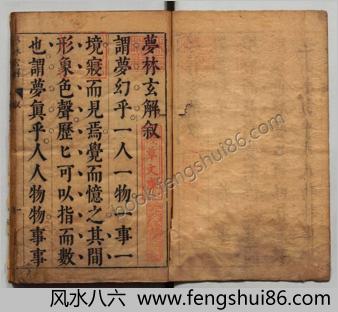 夢林玄解叙
謂夢幻乎一人一物一事一
境寢而見焉覺而憶之其間
形象色聲歷匕可以指而數
也謂夢眞乎人人物物事事
book.fengshui86.com
风水八六 - www.fengshui86.com